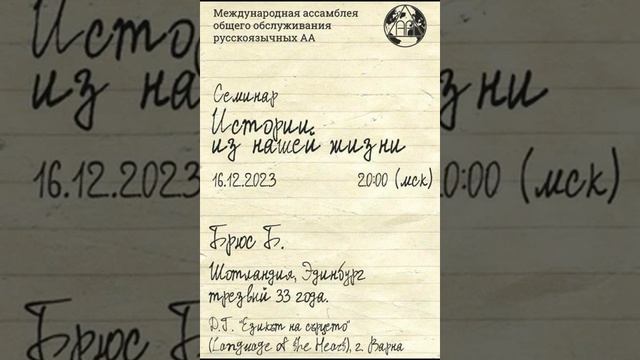 Международная ассамблея
общего обслуживания
русскоязычных АА
Семинар
Истории
из нашей жизни
16.12.2023 20:00 (мск)
Брюс Б.
Шотландия, Эдинбург
трезвый 33 года.
Д.Г. "Езикът на сърцето"
(Language of the Heart), г. Варна